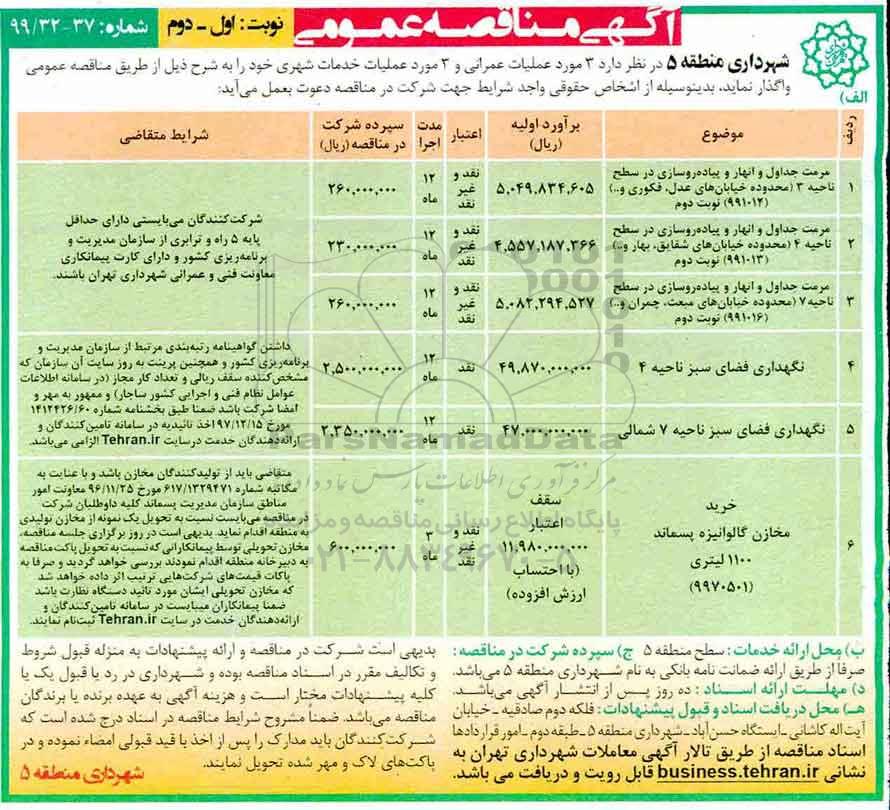 آگهی مناقصه عمومی
نوبت: اول ـ دوم
شماره: ۳۷-۹۹/۳۲
شهرداری منطقه ۵ در نظر دارد ۳ مورد عملیات عمرانی و ۳ مورد عملیات خدمات شهری خود را به شرح ذیل از طریق مناقصه عمومی
واگذار نماید، بدینوسیله از اشخاص حقوقی واجد شرایط جهت شرکت در مناقصه دعوت بعمل می‌آید:
الف)
ردیف
موضوع
برآورد اولیه
(ریال)
اعتبار
مدت
اجرا
سپرده شرکت
در مناقصه (ریال)
شرایط متقاضی
۱
مرمت جداول و انهار و پیاده‌روسازی در سطح
ناحیه ۳ (محدوده خیابان‌های عدل، فکوری و..)
(۹۹۱۰۱۲) نوبت دوم
۵,۰۴۹,۸۳۴,۶۰۵
نقد و
غیر
نقد
۱۲
ماه
۲۶۰,۰۰۰,۰۰۰
۲
مرمت جداول و انهار و پیاده‌روسازی در سطح
ناحیه ۴ (محدوده خیابان‌های شقایق، بهار و..)
(۹۹۱۰۱۳) نوبت دوم
۴,۵۵۷,۱۸۷,۳۶۶
نقد و
غیر
نقد
۱۲
ماه
۲۳۰,۰۰۰,۰۰۰
۳
مرمت جداول و انهار و پیاده‌روسازی در سطح
ناحیه۷ (محدوده خیابان‌های میعت، چمران و..)
(۹۹۱۰۱۶) نوبت دوم
۵,۰۸۲,۲۹۴,۵۲۷
نقد و
غیر
نقد
۱۲
ماه
۲۶۰,۰۰۰,۰۰۰
شرکت‌کنندگان می‌بایستی دارای حداقل
پایه ۵ راه و ترابری از سازمان مدیریت و
برنامه‌ریزی کشور و دارای کارت پیمانکاری
معاونت فنی و عمرانی شهرداری تهران باشند.
۴
نگهداری فضای سبز ناحیه ۴
۴۹,۸۷۰,۰۰۰,۰۰۰
نقد
۱۲
ماه
۲,۵۰۰,۰۰۰,۰۰۰
۵
نگهداری فضای سبز ناحیه ۷ شمالی
۴۷,۰۰۰,۰۰۰,۰۰۰
نقد
۱۲
ماه
۲,۳۵۰,۰۰۰,۰۰۰
داشتن گواهینامه رتبه‌بندی مرتبط از سازمان مدیریت و
برنامه‌ریزی کشور و همچنین پرینت به روز سایت آن سازمان که
مشخص‌کننده سقف ریالی و تعداد کار مجاز (در سامانه اطلاعات
عوامل نظام فنی و اجرایی کشور ساجار) و ممهور به مهر و
امضا شرکت باشد ضمنا طبق بخشنامه شماره ۱۴۱۲۴۲۶/۶۰
مورخ ۹۷/۱۲/۱۵ اخذ تائیدیه در سامانه تامین‌کنندگان و
ارائه‌دهندگان خدمت درسایت Tehran.ir الزامی می‌باشد.
۶
خرید
مخازن گالوانیزه پسماند
۱۱۰۰ لیتری
(۹۹۷۰۵۰۱)
سقف
اعتبار
۱۱,۹۸۰,۰۰۰,۰۰۰
(با احتساب
ارزش افزوده)
نقد و
غیر
نقد
۳
ماه
۶۰۰,۰۰۰,۰۰۰
متقاضی باید از تولیدکنندگان مخازن باشد و با عنایت به
مکاتبه شماره ۶۱۷/۱۳۲۹۴۷۱ مورخ ۹۶/۱۱/۲۵ معاونت امور
مناطق سازمان مدیریت پسماند کلیه داوطلبان شرکت
در مناقصه می‌بایست نسبت به تحویل یک نمونه از مخازن تولیدی
به منطقه اقدام نماید. بدیهی است در روز برگزاری جلسه مناقصه،
مخازن تحویلی توسط پیمانکارانی که نسبت به تحویل پاکت مناقصه
به دبیرخانه منطقه اقدام نمودند بررسی خواهد گردید و صرفا به
پاکات قیمت‌های شرکت‌هایی ترتیب اثر داده خواهد شد
که مخازن تحویلی ایشان مورد تائید دستگاه نظارت باشد
ضمنا پیمانکاران میبایست در سامانه تامین‌کنندگان و
ارائه‌دهندگان خدمت در سایت Tehran.ir ثبت‌نام نمایند.
ParsNamadData
مرکز فرآوری اطلاعات پارس نماد داده
پایگاه اطلاع رسانی مناقصه و مزایده
۰۲۱-۸۸۳۴۹۶۷۰-۵
ب) محل ارائه خدمات: سطح منطقه ۵ ج) سپرده شرکت در مناقصه:
صرفا از طریق ارائه ضمانت نامه بانکی به نام شهرداری منطقه ۵ می‌باشد.
د) مهلت ارائه اسناد: ده روز پس از انتشار آگهی می‌باشد.
هـ) محل دریافت اسناد و قبول پیشنهادات: فلکه دوم صادقیه ـ خیابان
آیت‌اله کاشانی ـ ایستگاه حسن‌آباد ـ شهرداری منطقه ۵ ـ طبقه دوم ـ امور قراردادها
اسناد مناقصه از طریق تالار آگهی معاملات شهرداری تهران به
نشانی business.tehran.ir قابل رویت و دریافت می باشد.
بدیهی است شرکت در مناقصه و ارائه پیشنهادات به منزله قبول شروط
و تکالیف مقرر در اسناد مناقصه بوده و شهرداری در رد یا قبول یک یا
کلیه پیشنهادات مختار است و هزینه آگهی به عهده برنده یا برندگان
مناقصه می‌باشد. ضمناً مشروح شرایط مناقصه در اسناد درج شده است که
شرکت‌کنندگان باید مدارک را پس از اخذ با قید قبولی امضاء نموده و در
پاکت‌های لاک و مهر شده تحویل نمایند.
شهرداری منطقه ۵